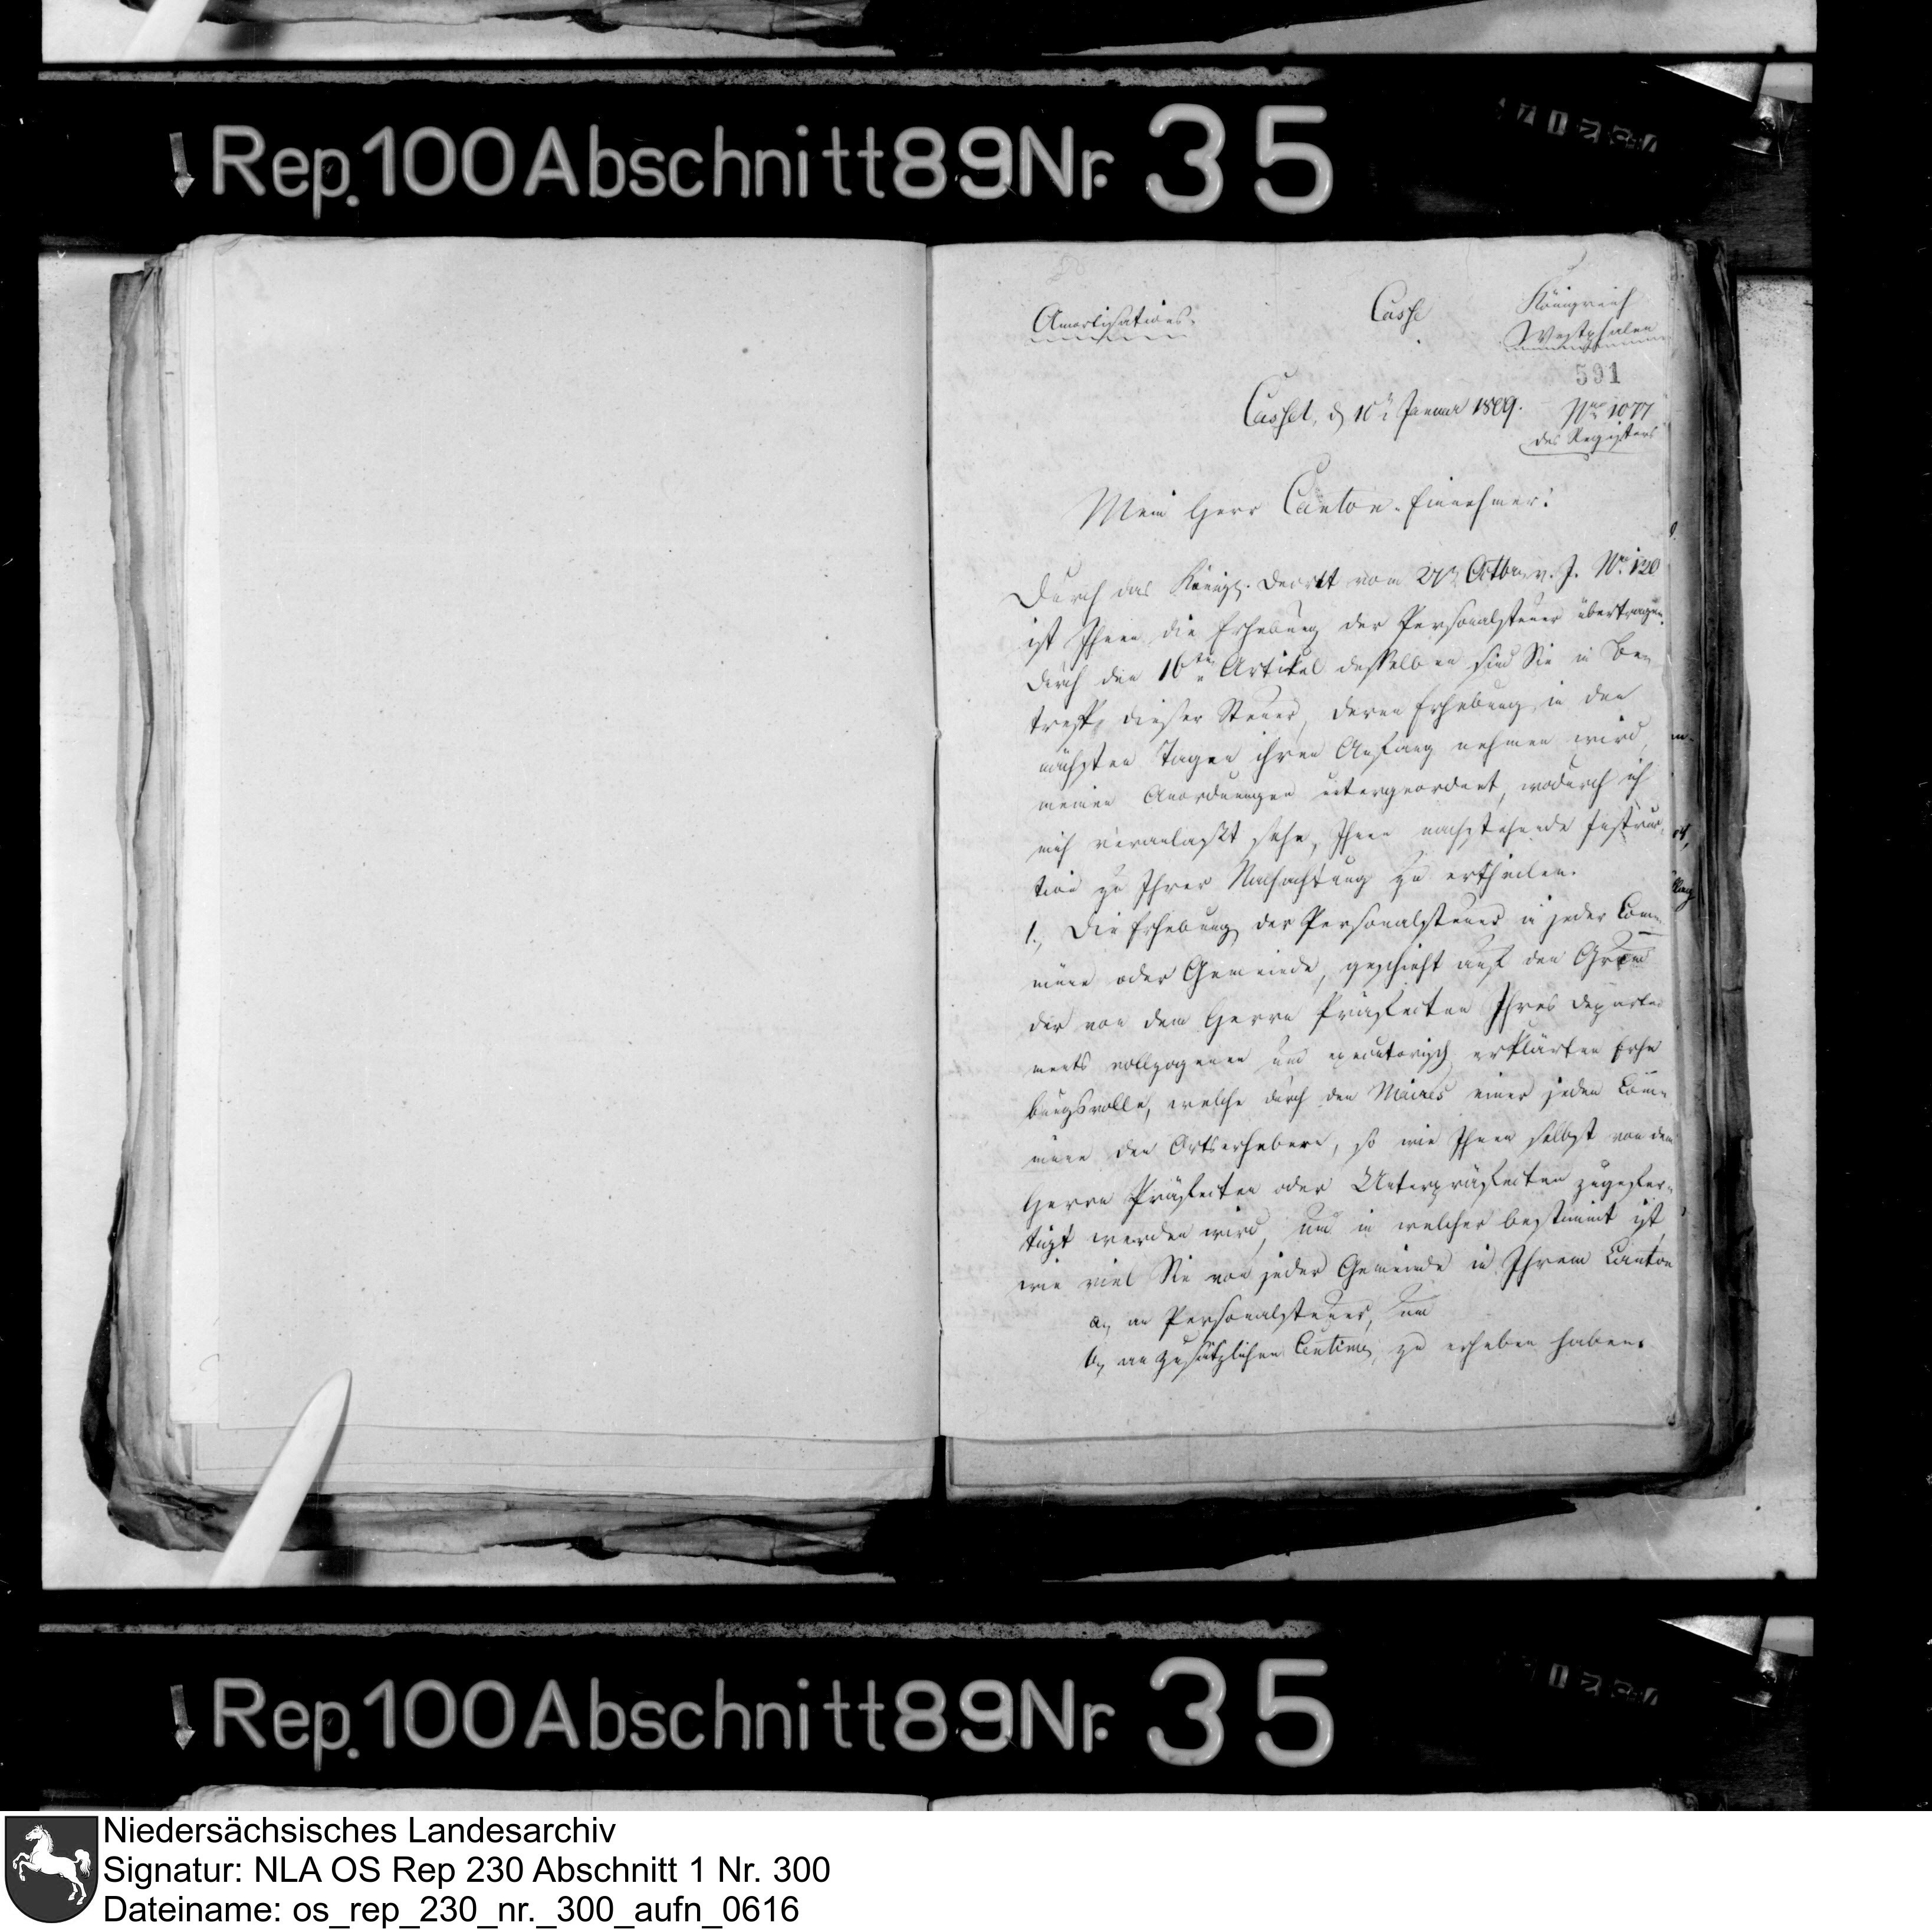 Rep. 100 Abschnitt 89 Nr. 35
Amortisations-
Casse
Königreich
Westphalen
591
Cassel, d 10t Januar 1809.
Nro 1077
des Registers
Mein Herr Canton-Einnehmer!
Durch das Königl. Decret vom Octbr. v. J. No. 120
ist Ihnen die Erhebung der Personalsteuer übertragen.
Durch den 16ten Artikel desselben sind Sie in Be-
treff dieser Steuer, deren Erhebung in den
nächsten Tagen ihren Anfang nehmen wird,
meinen Anordnungen untergeordnet, wodurch ich
mich veranlaßt sehe, Ihnen nachstehende Instruc-
tion zu Ihrer Nachachtung zu ertheilen.
1., Die Erhebung der Personalsteuer in jeder Com-
mune oder Gemeinde, geschieht auf den Grund
der von dem Herrn Präfecten Ihres Departe-
ments vollzogenen und executorisch erklärten Erhe
bungsrolle, welche durch den Maires einer jeden Com-
mune den Ortserhebern, so wie Ihnen selbst von dem
Herrn Präfecten oder Unterpräfecten zugefer-
tigt werden wird, und in welcher bestimmt ist,
wie viel Sie von jeder Gemeinde in Ihrem Canton
a., an Personalsteuer, und
b., an zusätzlichen Centimen, zu erheben haben.
Rep. 100 Abschnitt 89 Nr. 35
Niedersächsisches Landesarchiv
Signatur: NLA OS Rep 230 Abschnitt 1 Nr. 300
Dateiname: os_rep_230_nr._300_aufn_0616